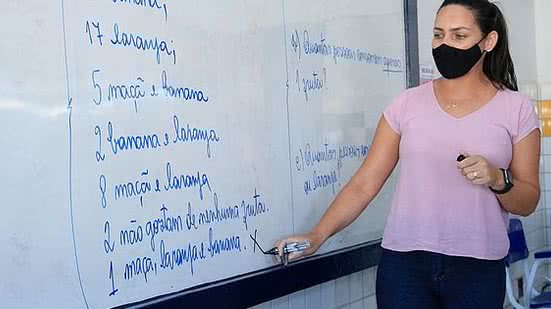 banana;
17 laranja;
5 maçã e banana
2 banana e laranja
8 maçã e laranja
2 não gostam de nenhuma fruta.
1 maçã, laranja e banana. X
d) Quantas pessoas consomem apenas
1 fruta?
e) Quantas pessoas
ou laranja?